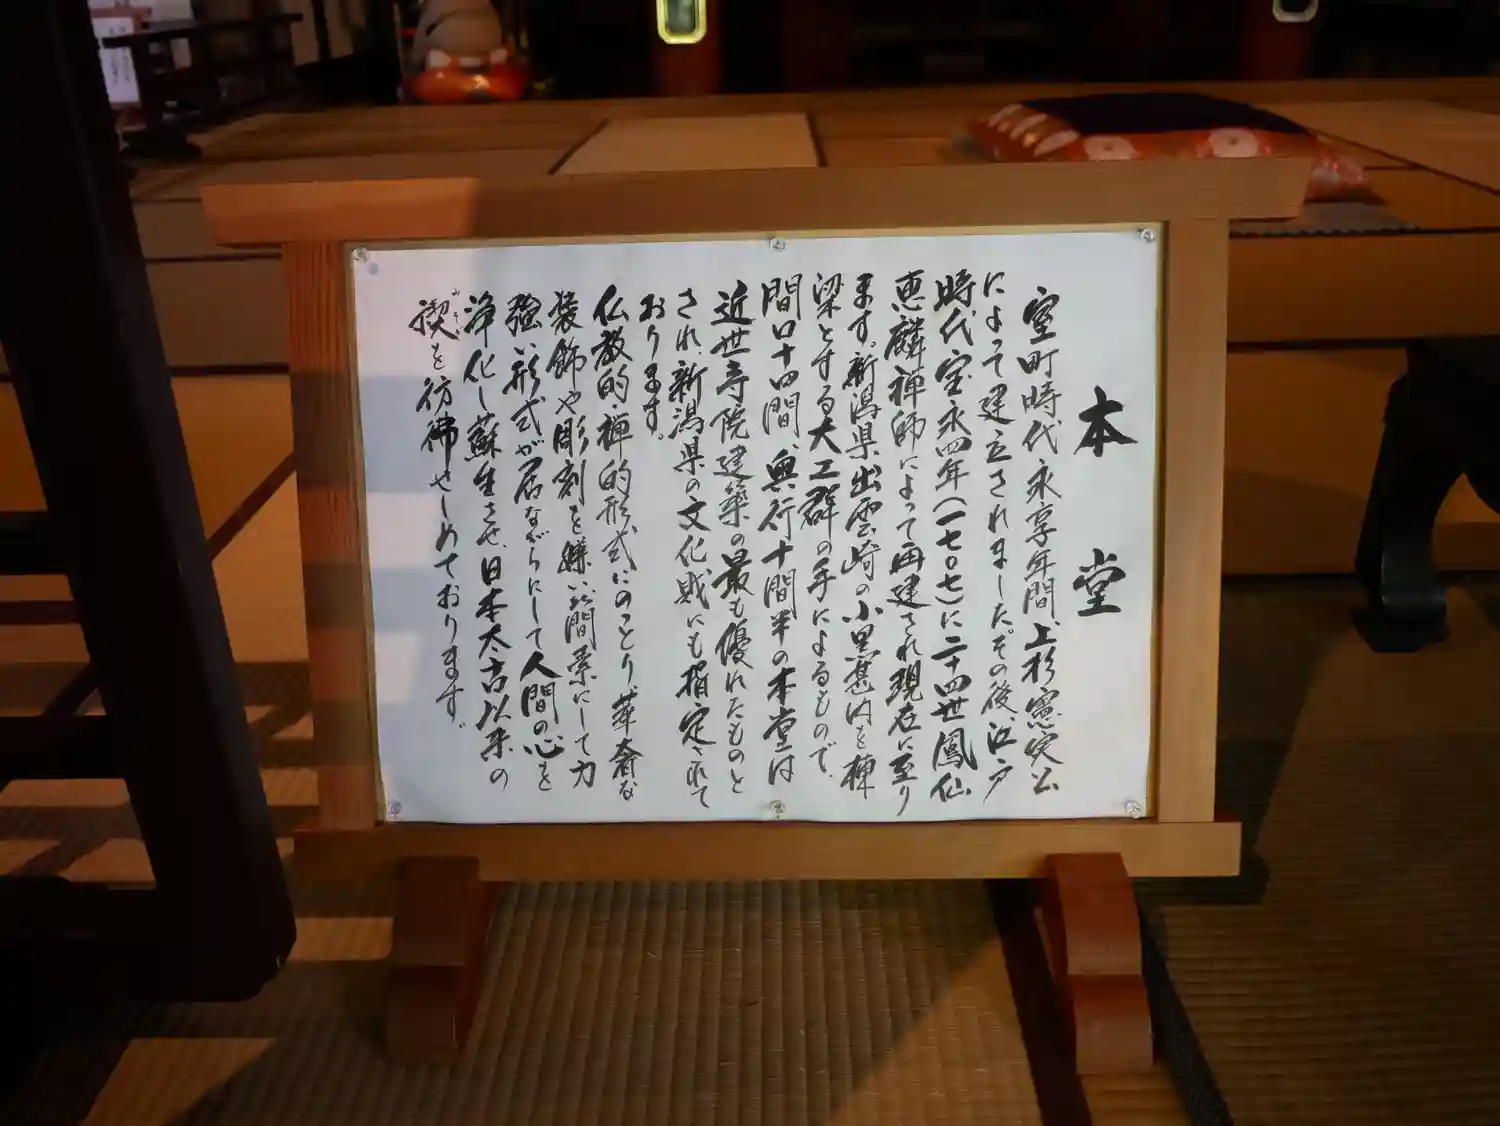 本堂
室町時代永享年間、上杉憲実公
によって建立されました。その後、江戸
時代宝永四年(一七〇七)に二十四世鳳仙
恵麟禅師によって再建され現在に至り
ます。新潟県出雲崎の小黒甚内を棟
梁とする大工群の手によるもので、
間口十四間、奥行十間半の本堂は
近世寺院建築の最も優れたものと
され、新潟県の文化財にも指定されて
おります。
仏教的・禅的形式にのっとり華奢な
装飾や彫刻を嫌い、簡素にして力
強い形式が居ながらにして人間の心を
浄化し蘇生させ、日本太古以来の
禊を彷彿せしめております。
みそぎ